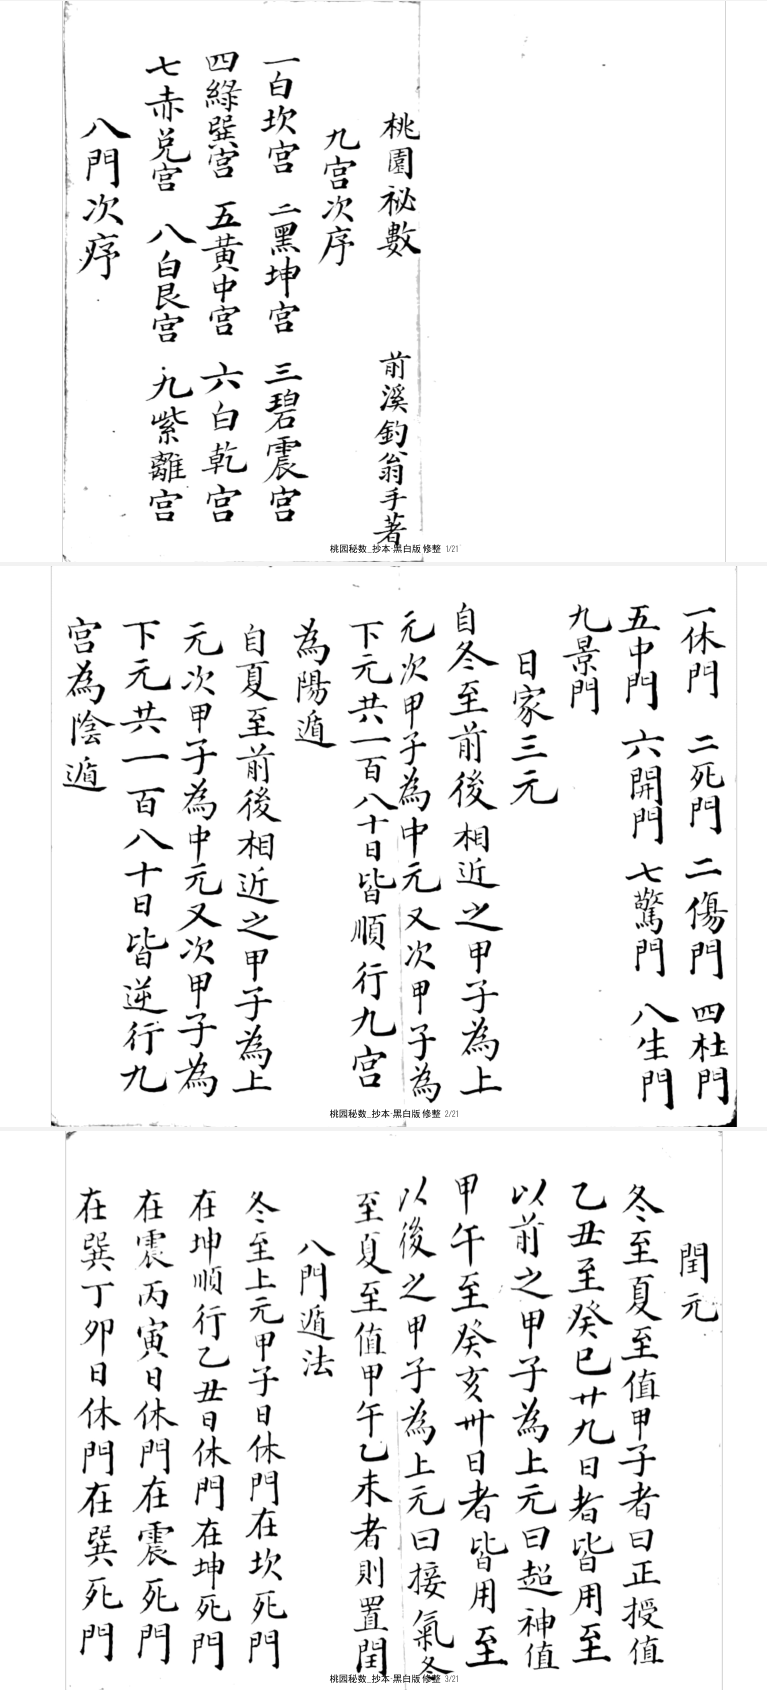 桃園祕數　前溪釣翁手著
九宮次序
一白坎宮　二黑坤宮　三碧震宮
四綠巽宮　五黃中宮　六白乾宮
七赤兌宮　八白艮宮　九紫離宮
八門次序
桃园秘数_抄本·黑白版修整 1/21
一休門　二死門　二傷門　四杜門
五中門　六開門　七驚門　八生門
九景門
日家三元
自冬至前後相近之甲子為上
元次甲子為中元又次甲子為
下元共一百八十日皆順行九宮
為陽遁
自夏至前後相近之甲子為上
元次甲子為中元又次甲子為
下元共一百八十日皆逆行九
宮為陰遁
桃园秘数_抄本·黑白版修整 2/21
閏元
冬至夏至值甲子者曰正授值
乙丑至癸巳廿九日者皆用至
以前之甲子為上元曰超神值
甲午至癸亥卅日者皆用至
以後之甲子為上元曰接氣冬
至夏至值甲午乙未者則置閏
八門遁法
冬至上元甲子日休門在坎死門
在坤順行乙丑日休門在坤死門
在震丙寅日休門在震死門
在巽丁卯日休門在巽死門
桃园秘数_抄本·黑白版修整 3/21